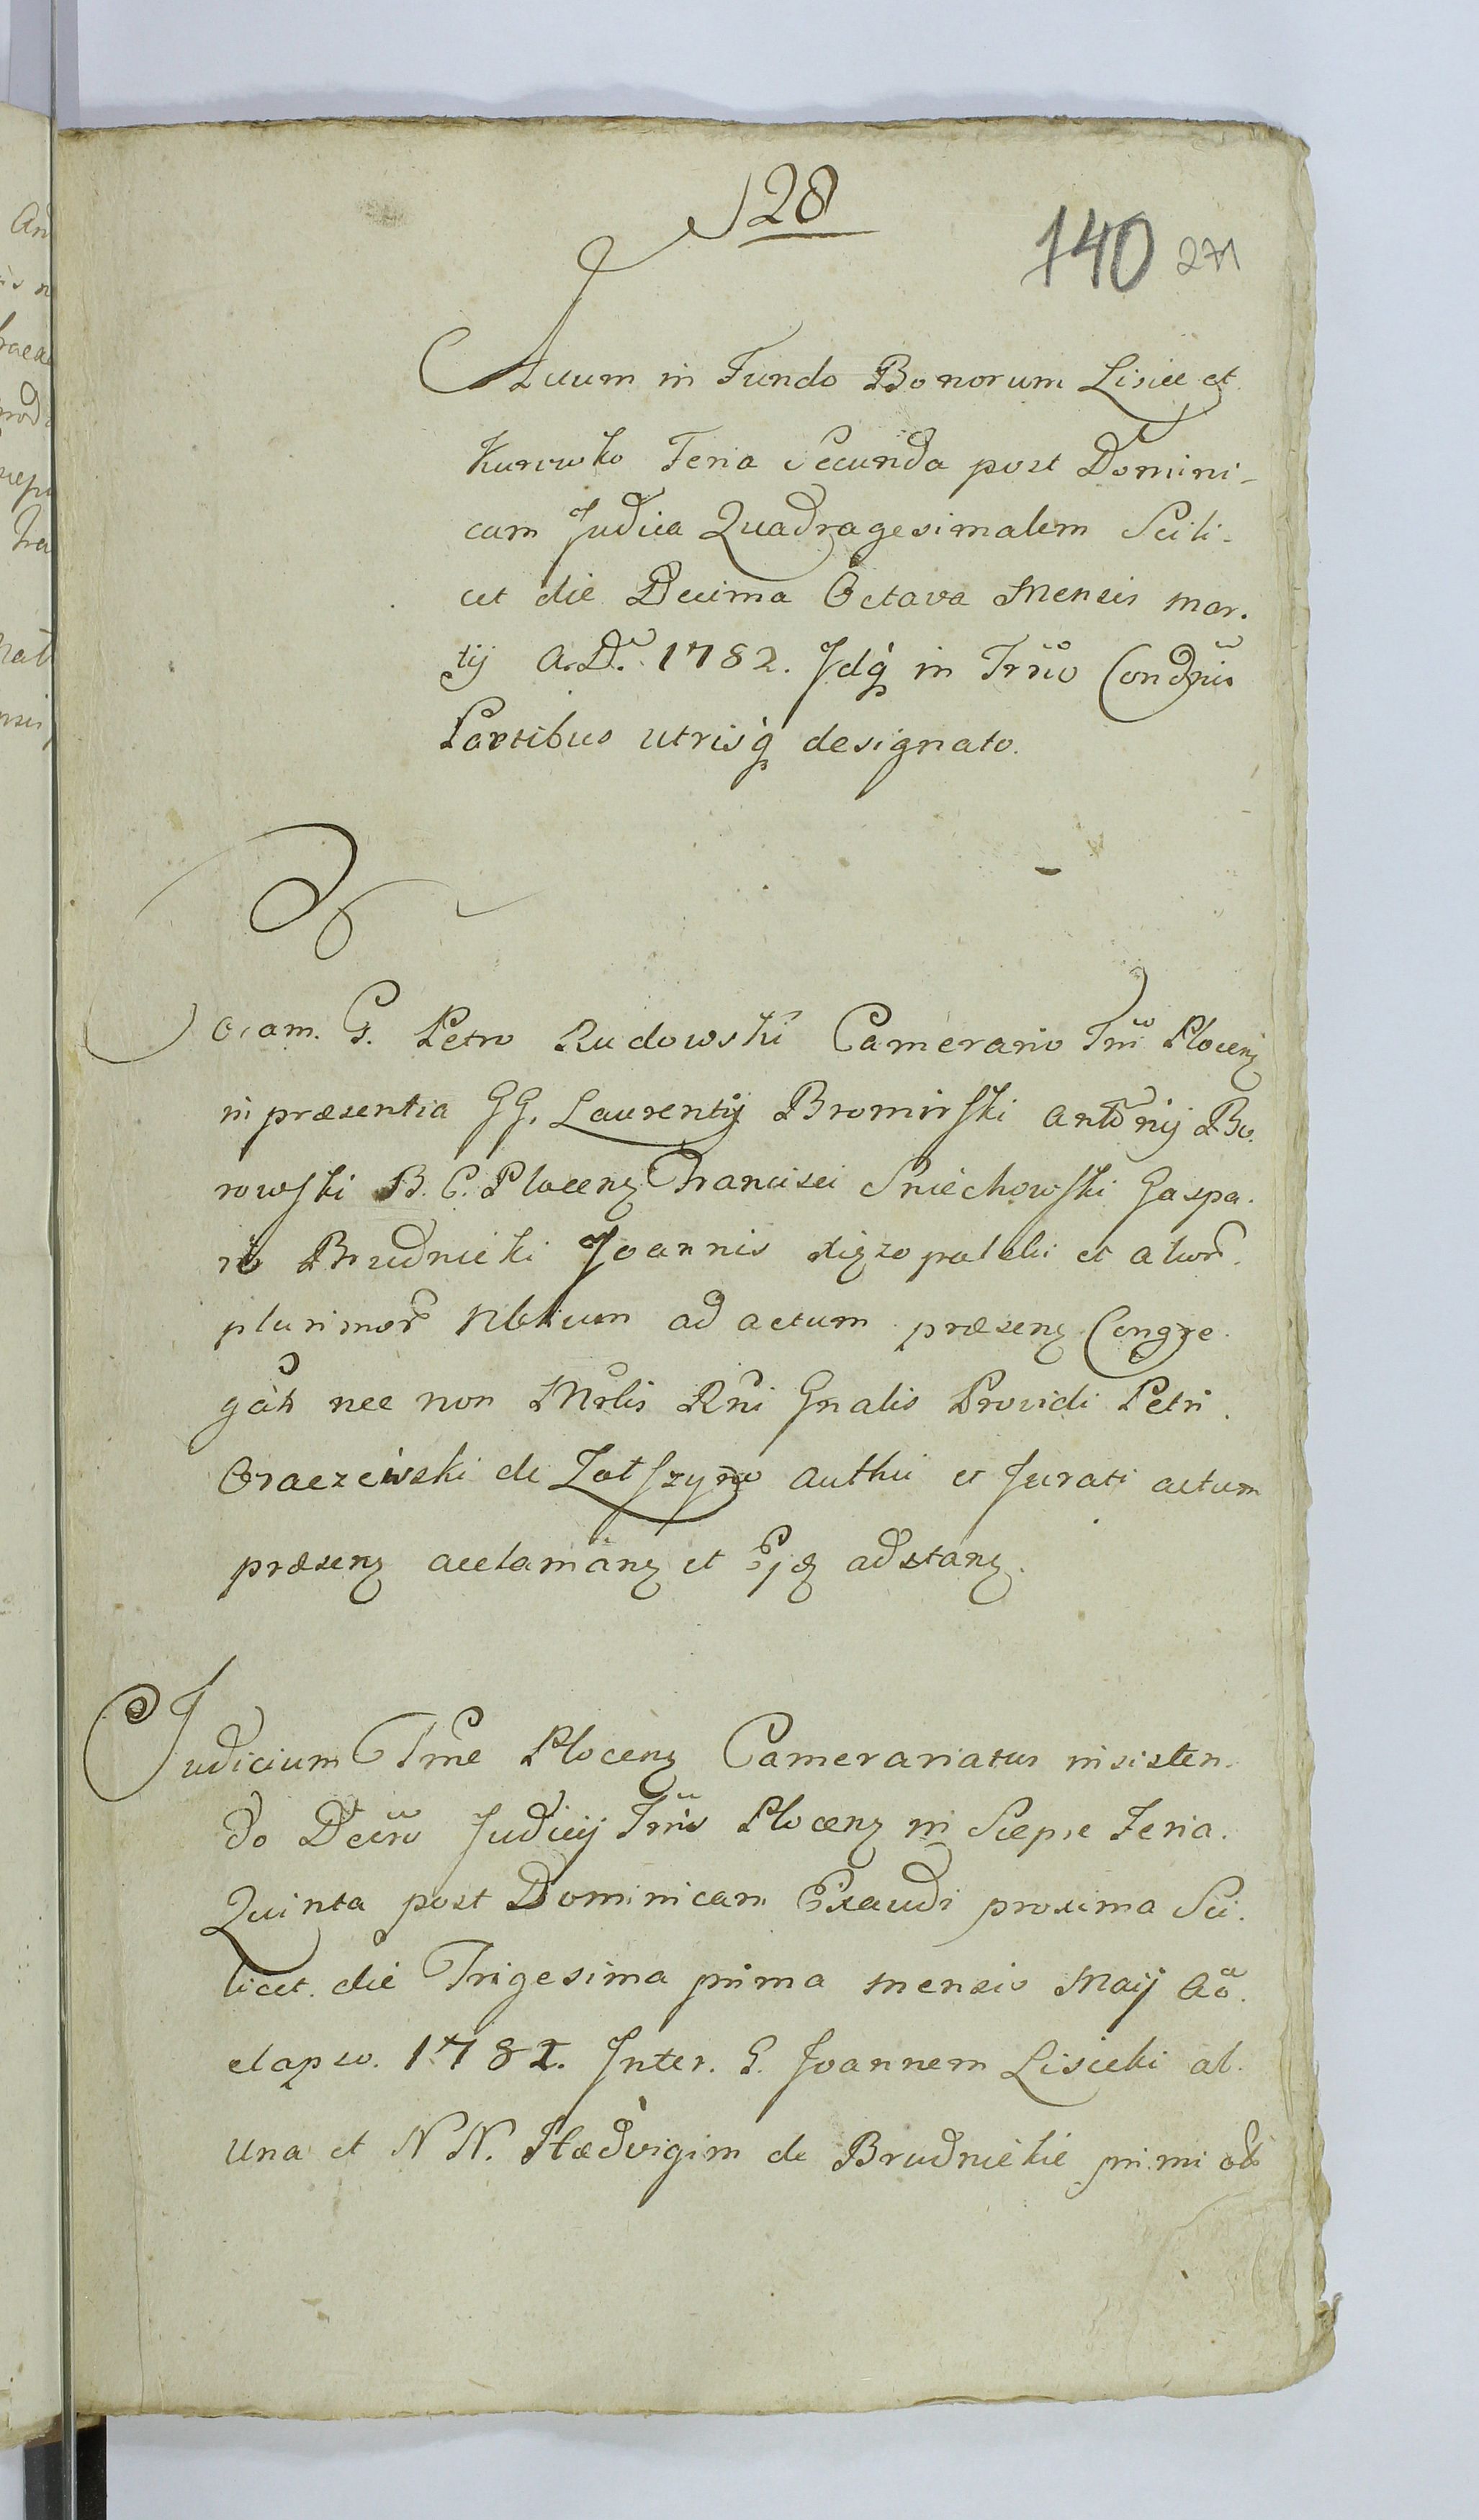 28
140 271
Actum in Fundo Bonorum Lisice et
Kurowko Feria Secunda post Domini-
cam Judica Quadragesimalem Scili-
cet die Decima Octava Mensis Mar-
tij A. D. 1782. Jdq in Trio Condnis
Partibus utrisq designato.
Coram. G. Petro Rudowski Camerario Trri Plocens
in præsentia GG. Laurentij Bromirski Antonij Bo-
rowski B. C. Plocens Francisci Sniechowski Gaspa-
ris Brudnicki Joannis et alior.
plurimor Nblium ad actum præsens Congre-
gat nec non Mrlis Rni Gnalis Providi Petri
Graczewski de authci et Jurati actum
præsens acclamans et adstans.
Judicium Trrne Plocens Camerariatus insisten-
do Decro Judicij Trris Plocens in Sierpc Feria
Quinta post Dominicam Exaudi proxima Sci-
licet die Trigesima prima mensis Maij Ao.
elapso. 1781. Inter. G. Joannem Lisicki ab
una et N N. Hædvigim de Brudnickie primi